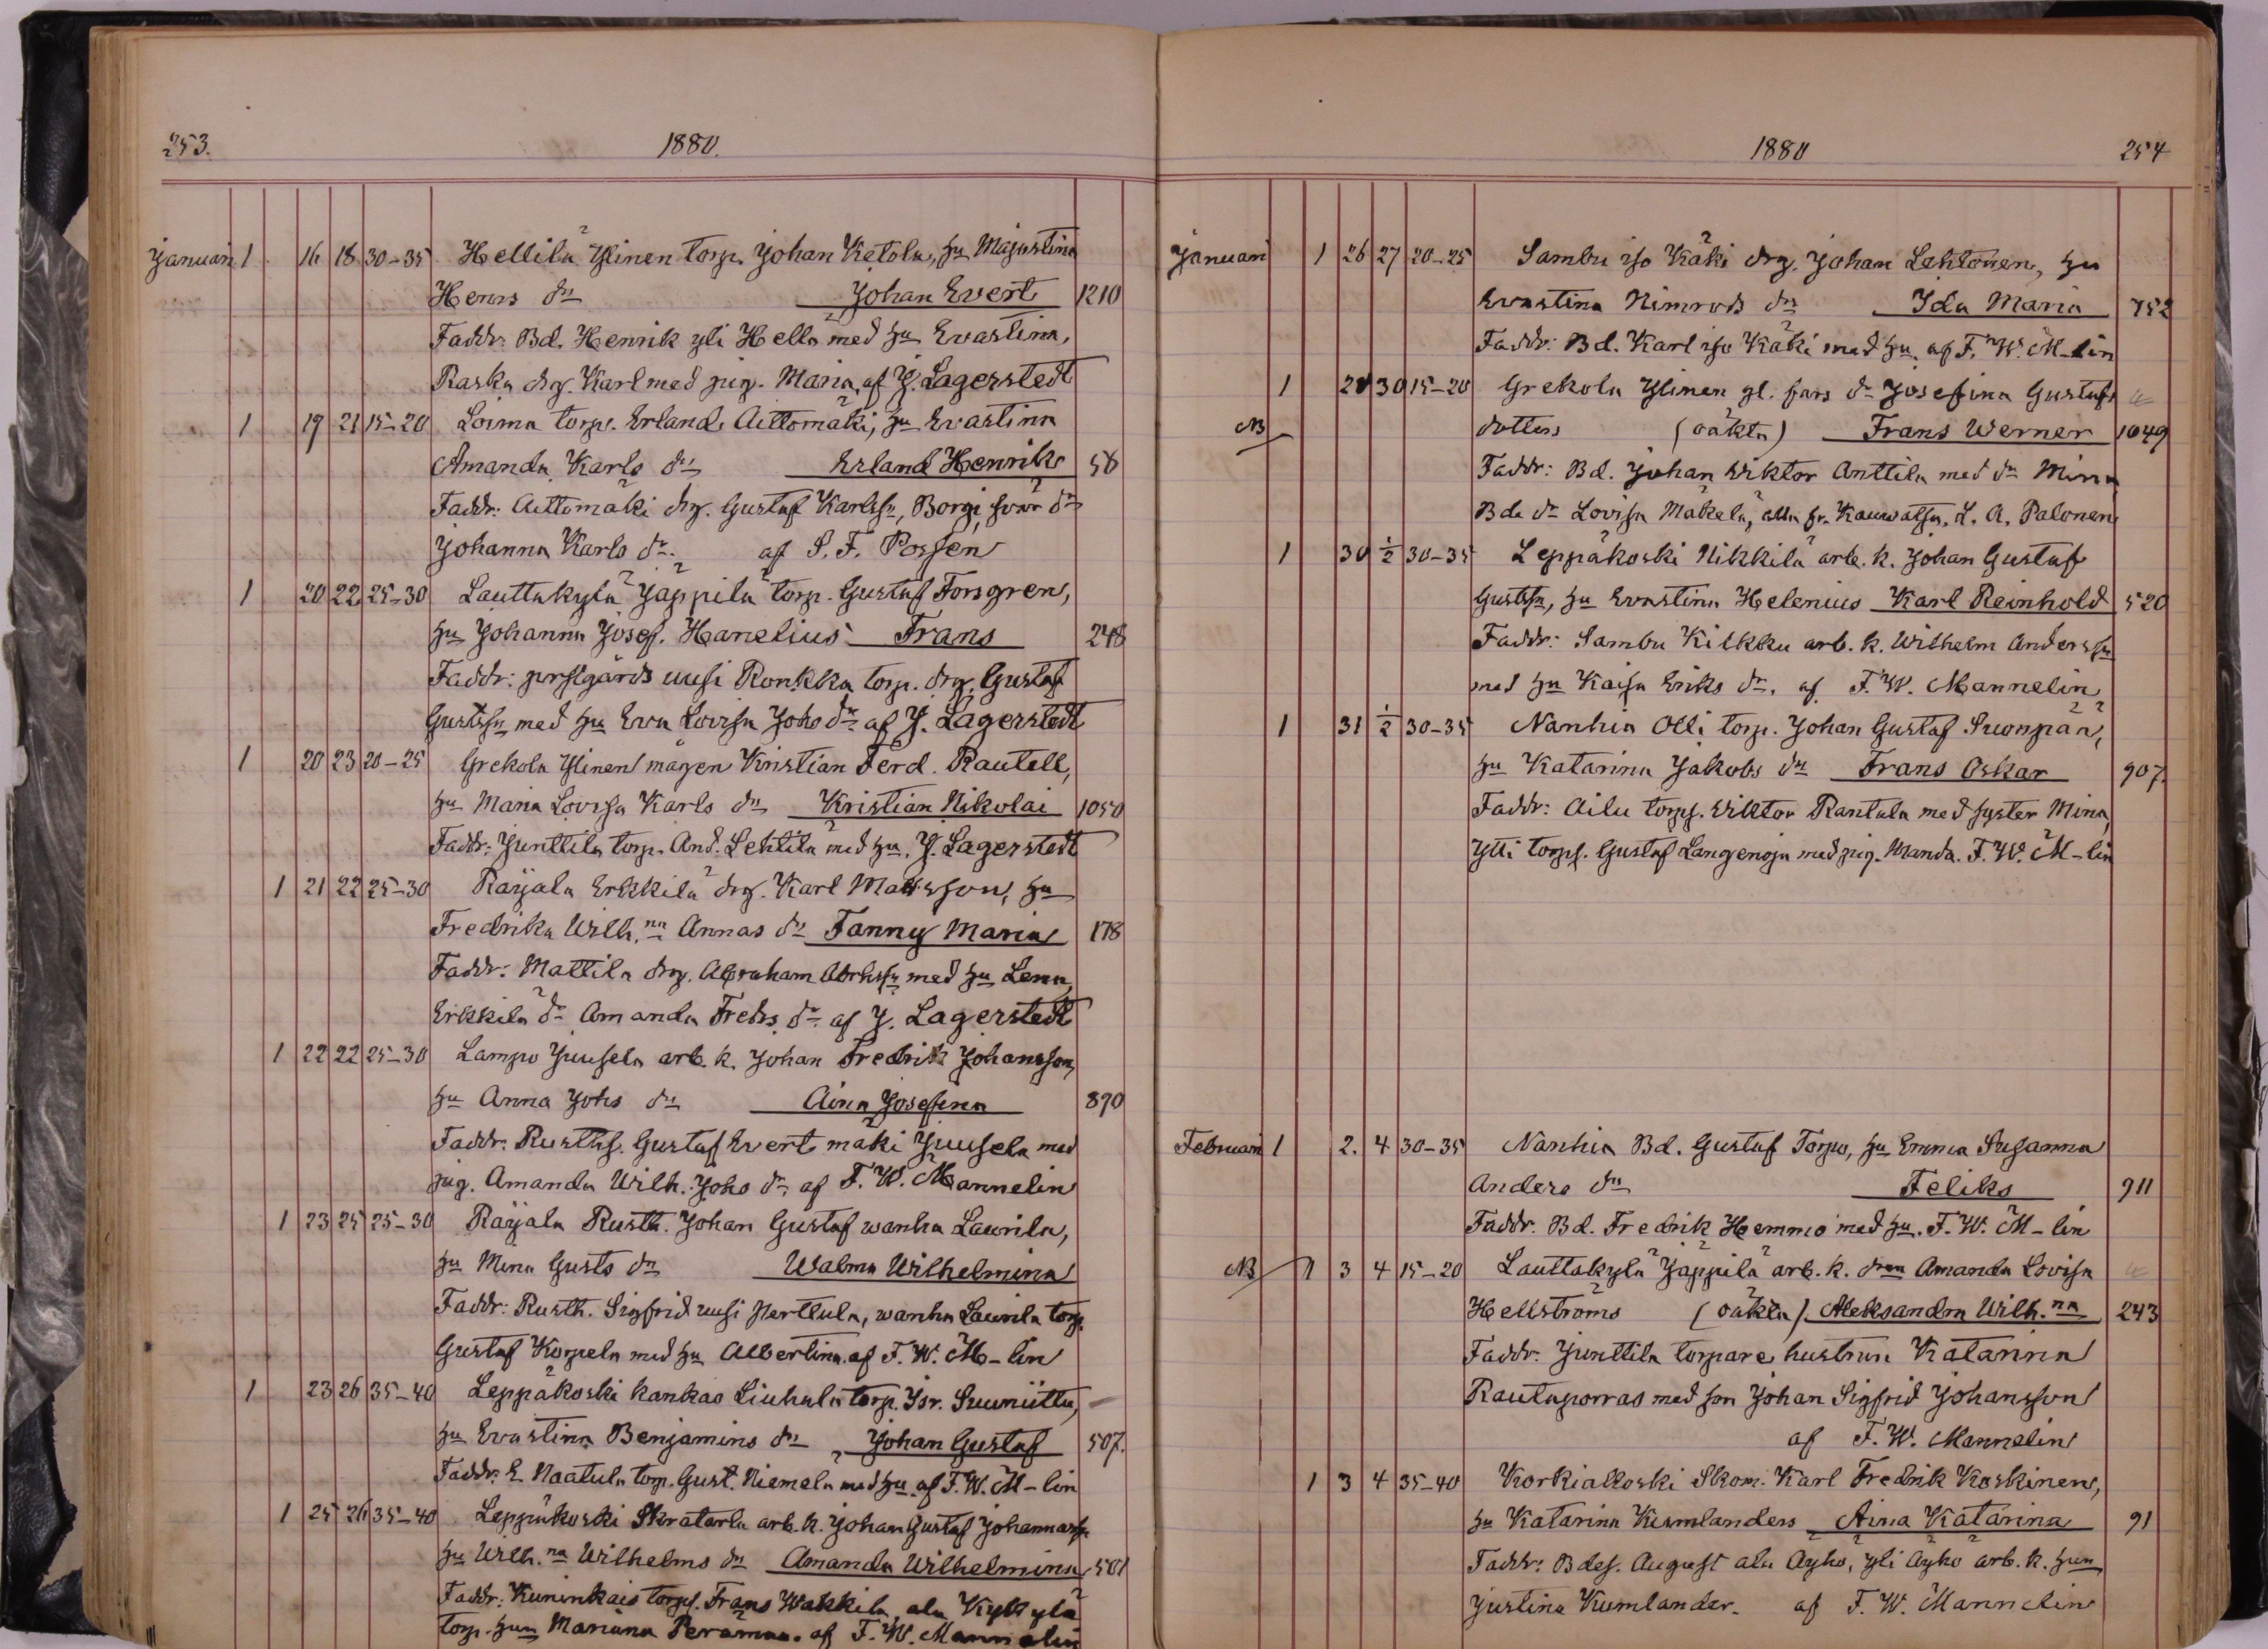 253. 1880.
Januari 1 16 18 30-35 Hellilä Ylinen torp. Johan Ketola, hu Majastina
Henrs dr Johan Evert 1210
Faddr: Bd. Henrik yli Hella med hu Evastina,
Raska drg. Karl med pig. Maria, af J. Lagerstedt
1 19 21 15-20 Loima torp. Erland Aittomäki, hu Evastina
Amanda Karls dr Erland Henrik 58
Faddr: Aittomäki drg. Gustaf Karlssn, Borgi svär dr
Johanna Karls dr. af S. F. Possén
1 20 22 25-30 Lauttakylä Jäppilä torp. Gustaf Forsgren,
hu Johanna Josef. Hanelius Frans 248
Faddr: prstgårds uusi Ronkka torp. drg. Gustaf
Gustssn med hu Eva Lovisa Johs dr af J. Lagerstedt
1 20 23 20-25 Grekola Ylinen mågen Kristian Ferd. Rautell,
hu Maria Lovisa Karls dr Kristian Nikolai 1050
Faddr: Junttila torp. And. Lehtilä med hu. J. Lagerstedt
1 21 22 25-30 Raijala Erkkilä drg. Karl Matsson, hu
Fredrika Wilh.na Annas dr Fanny Maria 178
Faddr: Mattila drg. Abraham Abrhssn med hu Lena,
Erkkilä dr Amanda Freds. dr af J. Lagerstedt
1 22 22 25-30 Lampo Juusela arb. k. Johan Fredrik Johansson,
hu Anna Johs dr Aina Josefina 890
Faddr: Rusths. Gustaf Evert mäki Juusela med
pig. Amanda Wilh. Johs dr af F. W. Mannelin
1 23 25 25-30 Raijala Rusth. Johan Gustaf wanha Laurila,
hu Mina Gusts dr Walma Wilhelmina
Faddr: Rusth. Sigfrid uusi Perttula, wanha Laurila torp.
Gustaf Korpela med hu Albertina. af F. W. M-lin
1 23 26 35-40 Leppäkoski kankas Liuhala torp. Isr. Suuniittu,
hu Evastina Benjamins dr Johan Gustaf 507.
Faddr: E. Naatula torp. Gust. Niemelä med hu. af F. W. M-lin
1 25 26 35-40 Leppäkoski Skratarla arb. k. Johan Gustaf Johannassn
hu Wilh.na Wilhelms dr Amanda Wilhelmina 501
Faddr: Kuninkais torps. Frans Wakkila, ala Kyttylä
torp. hun Mariana Perämaa. af F. W. Mannelin
1880 254
Januari 1 26 27 20-25 Sambu iso Käki drg. Johan Lehtonen, hu
Evastina Nimrods dr Ida Maria 752
Faddr: Bd. Karl iso Käki med hu. af F. W. M-lin
1 28 30 15-20 Grekola Ylinen gl. fars dr Josefina Gustafs
NB dotters (oäkta) Frans Werner 1049
Faddr: Bd. Johan Wiktor Anttila med dr Mina
Bds dr Lovisa Mäkelä, alla fr. Kauwatsa. L. A. Palonen
1 30 1/2 30-35 Leppäkoski Nikkilä arb. k. Johan Gustaf
Gustssn, hu Evastina Helenius Karl Reinhold 520
Faddr: Sambu Kilkku arb. k. Wilhelm Anderssn
med hu Kaisa Eriks dr. af F. W. Mannelin
1 31 1/2 30-35 Nanhia Olli torp. Johan Gustaf Suonpää,
hu Katarina Jakobs dr Frans Oskar 907.
Faddr: Ailu torps. Wiktor Rantala med syster Mina,
Ylli torps. Gustaf Langenoja med pig. Wanda. F. W. M-lin
Februari 1 2. 4 30-35 Nanhia Bd. Gustaf Torpo, hu Emma Susanna
Anders dr Feliks 911
Faddr. Bd. Fredrik Hemmo med hu. F. W. M-lin
NB 1 3 4 15-20 Lauttakylä Jäppilä arb. k. dran Amanda Lovisa
Hellströms (oäkta) Aleksandra Wilh.na 243
Faddr. Junttila torpare hustrun Katarina
Rautaporras med son Johan Sigfrid Johansson
af F. W. Mannelin
1 3 4 35-40 Korkiakoski Skom. Karl Fredrik Koskinen,
hu Katarina Kumlanders Aina Katarina 91
Faddr: Bdes. August ala Äyhö, yli Äyhö arb. k. hun
Justina Kumlander. af F. W. Mannelin